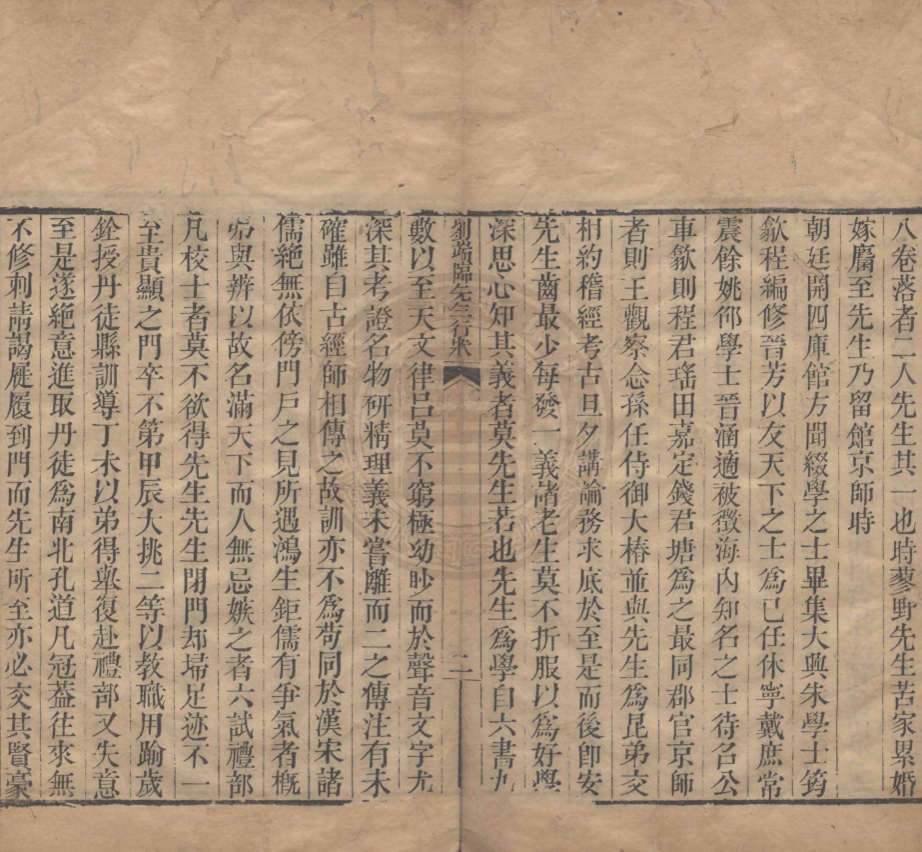 八卷落者二人先生其一也時蓼野先生苦家累婚
嫁屬至先生乃留館京師時
朝廷開四庫館方聞綴學之士畢集大興朱學士筠
歙程編修晉芳以友天下之士爲已任休寧戴庶常
震餘姚邵學士晉涵適被徵海內知名之士待召公
車歙則程君瑤田嘉定錢君塘爲之最同郡官京師
者則王觀察念孫任侍御大椿並與先生爲昆弟交
相約稽經考古旦夕講論務求底於至是而後卽安
先生齒最少每發一義諸老生莫不折服以爲好學
深思心知其義者莫先生若也先生爲學自六書九
劉端臨先生行狀 二
數以至天文律呂莫不窮極幼眇而於聲音文字尤
深其考證名物硏精理義未嘗離而二之傳注有未
確雖自古經師相傳之故訓亦不爲苟同於漢宋諸
儒絕無依傍門戶之見所遇鴻生鉅儒有爭氣者槪
弗與辨以故名滿天下而人無忌嫉之者六試禮部
凡校士者莫不欲得先生先生閉門却埽足迹不一
至貴顯之門卒不第甲辰大挑二等以教職用踰歲
銓授丹徒縣訓導丁未以弟得舉復赴禮部又失意
至是遂絕意進取丹徒爲南北孔道凡冠蓋往來無
不修刺請謁屣履到門而先生所至亦必交其賢豪